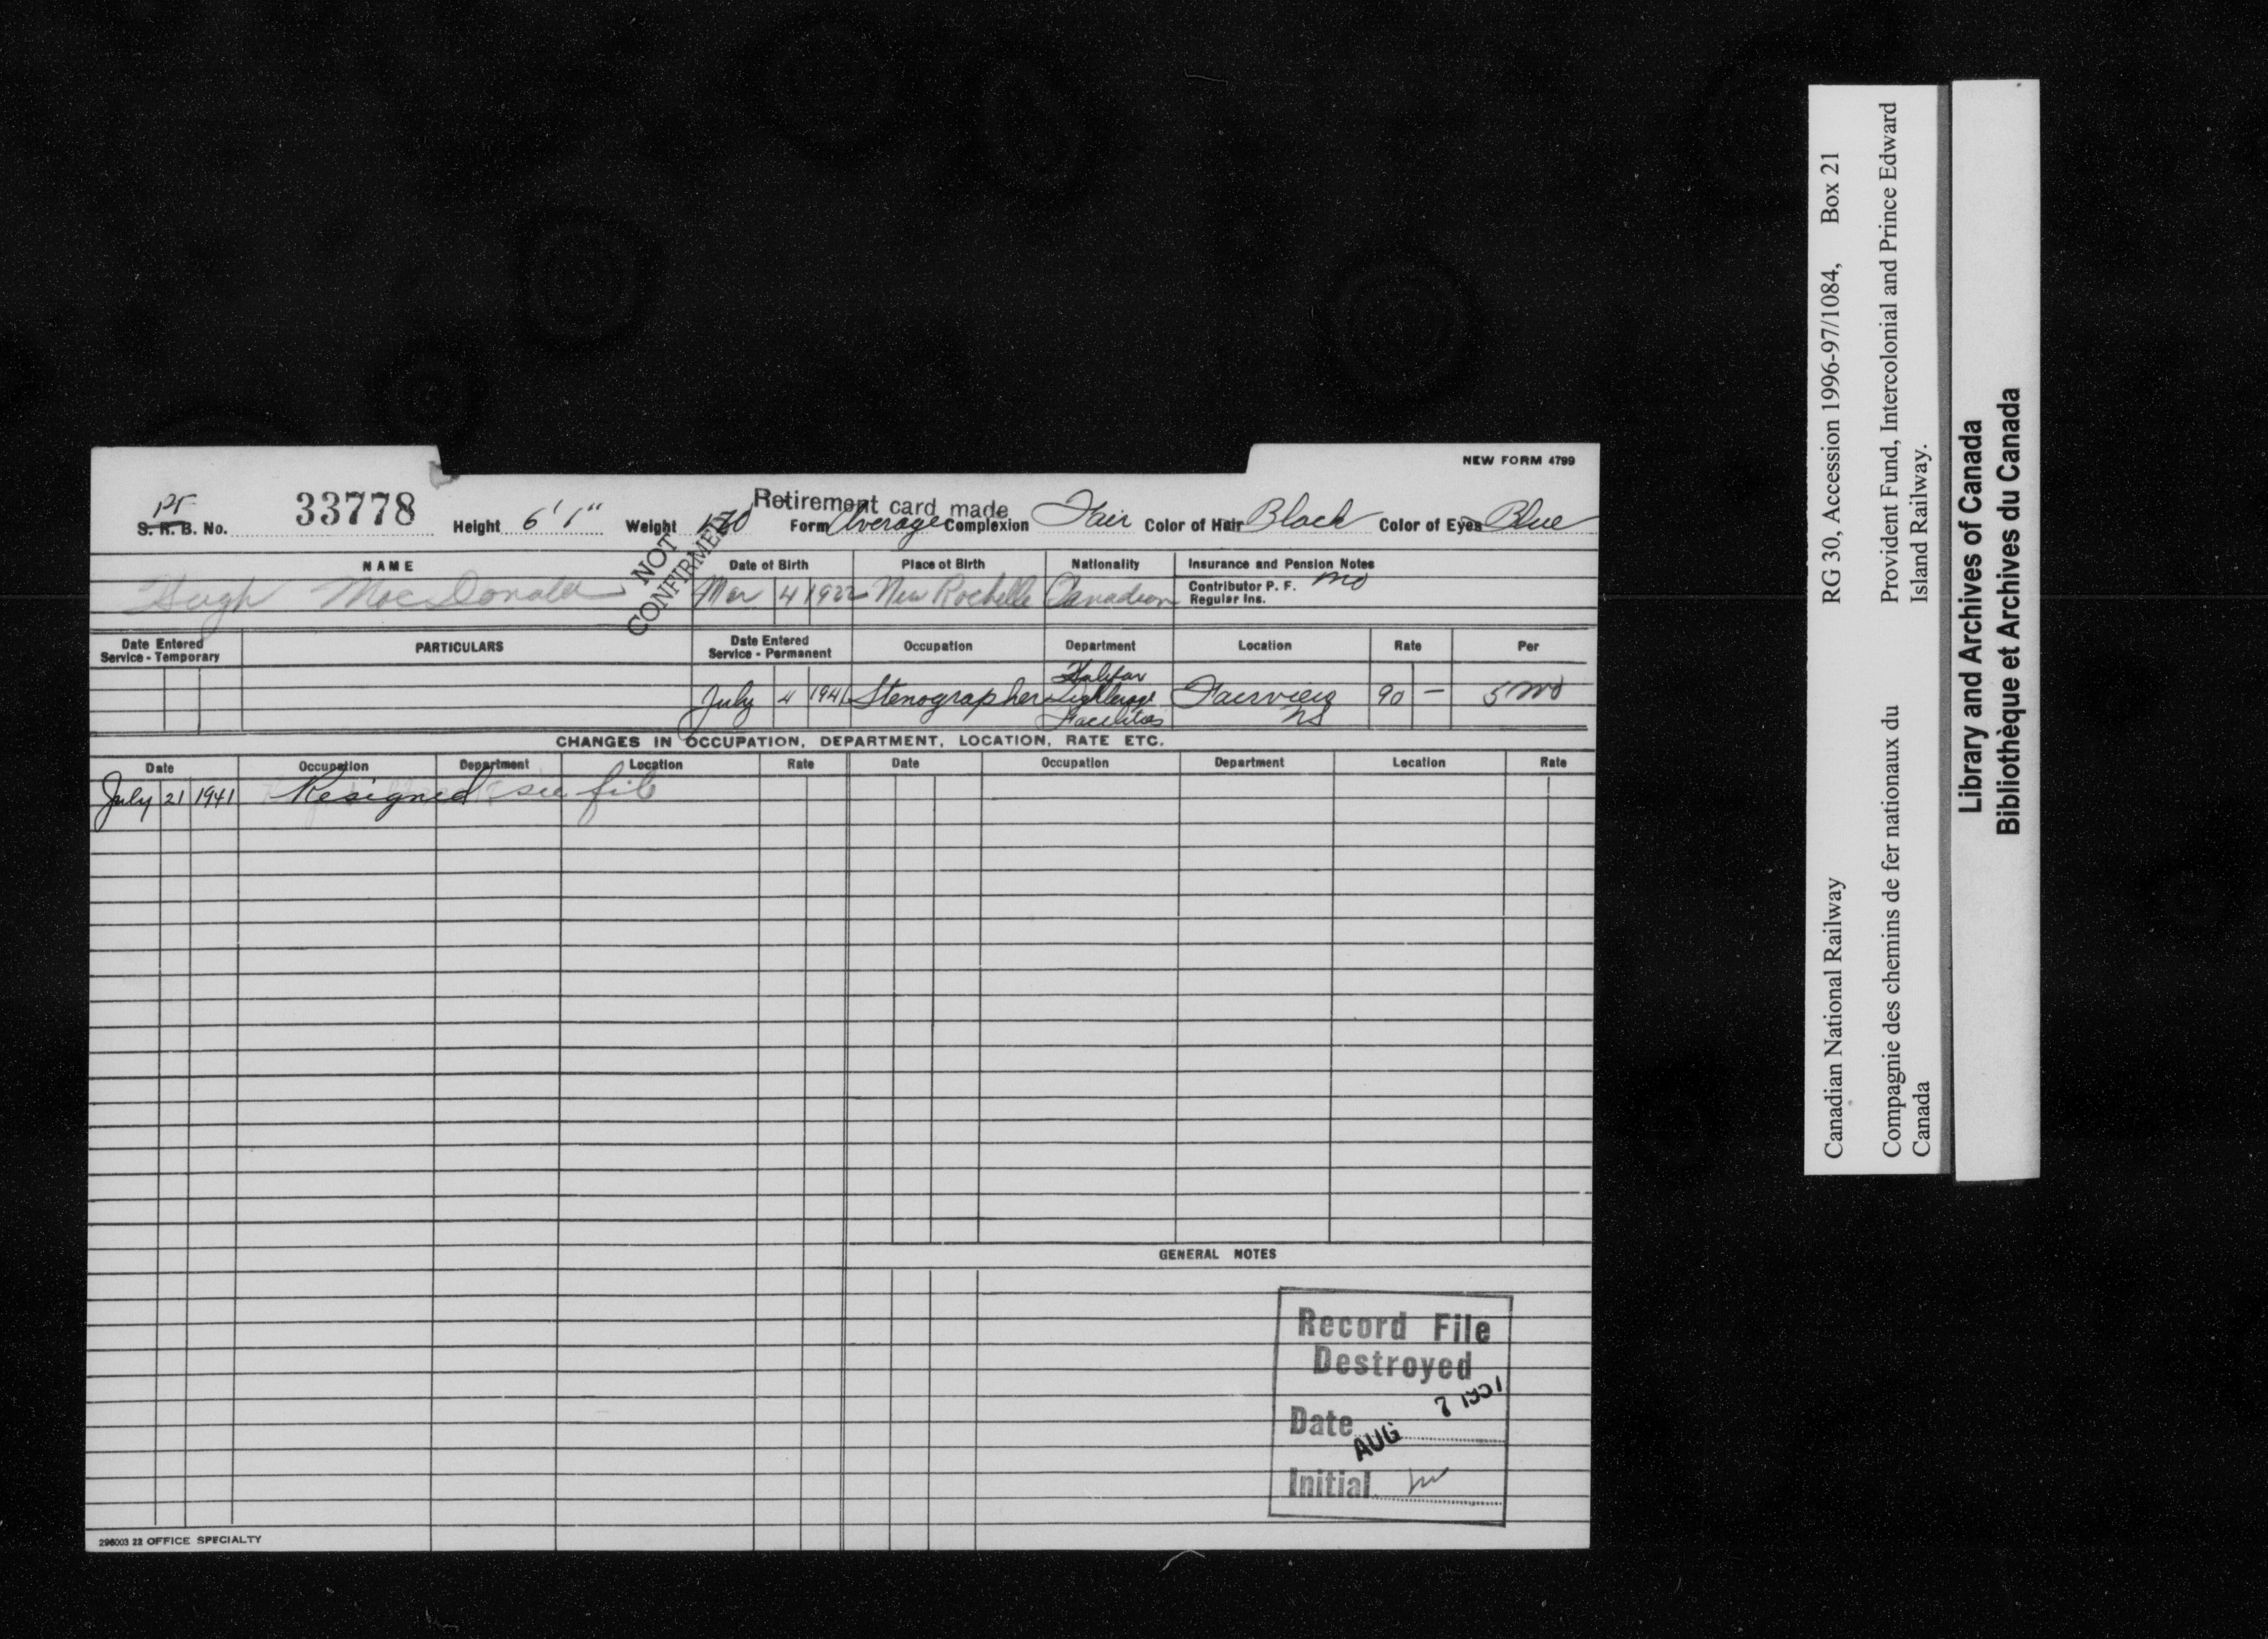 NEW FORM 4799
Retirement card made
PF
S. R. B. No. 33778 Height 6'1" Weight 170 Form Average Complexion Fair Color of Hair Black Color of Eyes Blue
NOT CONFIRMED
NAME Date of Birth Place of Birth Nationality Insurance and Pension Notes
Hugh MacDonald Mar 4 1922 New Rochelle Canadian Contributor P. F. no
Regular Ins.
Date Entered Service - Temporary PARTICULARS Date Entered Service - Permanent Occupation Department Location Rate Per
July 4 1941 Stenographer Halifax Lighterage Facilities Fairview NS 90 –
CHANGES IN OCCUPATION, DEPARTMENT, LOCATION, RATE ETC.
Date Occupation Department Location Rate Date Occupation Department Location Rate
July 21 1941 Resigned see file
GENERAL NOTES
Record File
Destroyed
Date AUG 7
Initial
296003 22 OFFICE SPECIALTY
Canadian National Railway RG 30, Accession 1996-97/1084, Box 21
Compagnie des chemins de fer nationaux du Canada
Provident Fund, Intercolonial and Prince Edward Island Railway.
Library and Archives of Canada
Bibliothèque et Archives du Canada